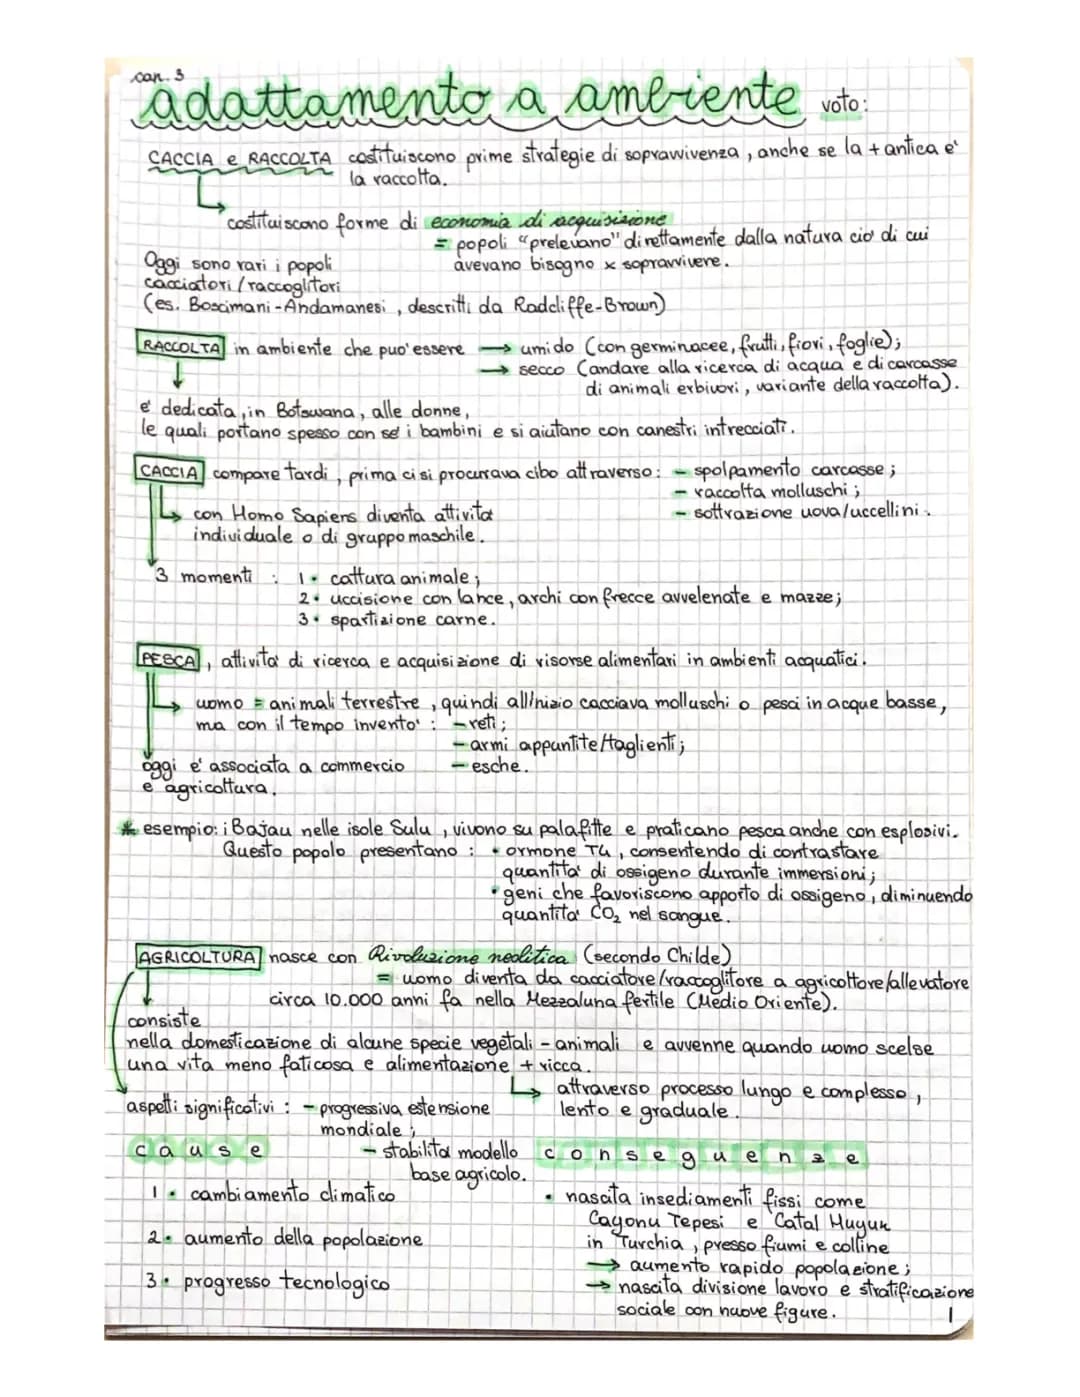 cap. 3
adattamento a ambiente voto:
CACCIA e RACCOLTA costituiscono prime strategie di sopravvivenza, anche se la + antica e'
la raccolta.
costituiscono forme di economia di acquisizione
= popoli "prelevano" direttamente dalla natura ciò di cui
avevano bisogno x sopravvivere.
Oggi sono rari i popoli
cacciatori/raccoglitori
(es. Boscimani-Andamanesi, descritti da Radcliffe-Brown)
RACCOLTA in ambiente che puo' essere → umido (con germinacee, frutti, fiori, foglie);
→ secco (andare alla ricerca di acqua e di carcasse
di animali erbivori, variante della raccolta).
e' dedicata, in Botswana, alle donne,
le quali portano spesso con se' i bambini e si aiutano con canestri intrecciati.
CACCIA compare tardi, prima ci si procurava cibo attraverso: - spolpamento carcasse;
- raccolta molluschi;
- sottrazione uova/uccellini.
con Homo Sapiens diventa attivita'
individuale o di gruppo maschile.
3 momenti : 1• cattura animale;
2• uccisione con lance, archi con frecce avvelenate e mazze;
3• spartizione carne.
PESCA, attivita' di ricerca e acquisizione di risorse alimentari in ambienti acquatici.
uomo = animali terrestre, quindi all'inizio cacciava molluschi o pesci in acque basse,
ma con il tempo invento' : - reti;
- armi appuntite/taglienti;
- esche.
oggi e' associata a commercio
e agricoltura.
* esempio: i Bajau nelle isole Sulu, vivono su palafitte e praticano pesca anche con esplosivi.
Questo popolo presentano : • ormone T4, consentendo di contrastare
quantita' di ossigeno durante immersioni;
• geni che favoriscono apporto di ossigeno, diminuendo
quantita' CO₂ nel sangue.
AGRICOLTURA nasce con Rivoluzione neolitica (secondo Childe)
= uomo diventa da cacciatore/raccoglitore a agricoltore/allevatore
circa 10.000 anni fa nella Mezzaluna fertile (Medio Oriente).
consiste
nella domesticazione di alcune specie vegetali - animali e avvenne quando uomo scelse
una vita meno faticosa e alimentazione + ricca.
attraverso processo lungo e complesso,
lento e graduale.
aspetti significativi : - progressiva estensione
mondiale;
- stabilita' modello
base agricolo.
cause
1• cambiamento climatico
2• aumento della popolazione
3• progresso tecnologico
conseguenze
• nascita insediamenti fissi come
Cayonu Tepesi e Catal Huyuk
in Turchia, presso fiumi e colline
→ aumento rapido popolazione;
→ nascita divisione lavoro e stratificazione
sociale con nuove figure.
1